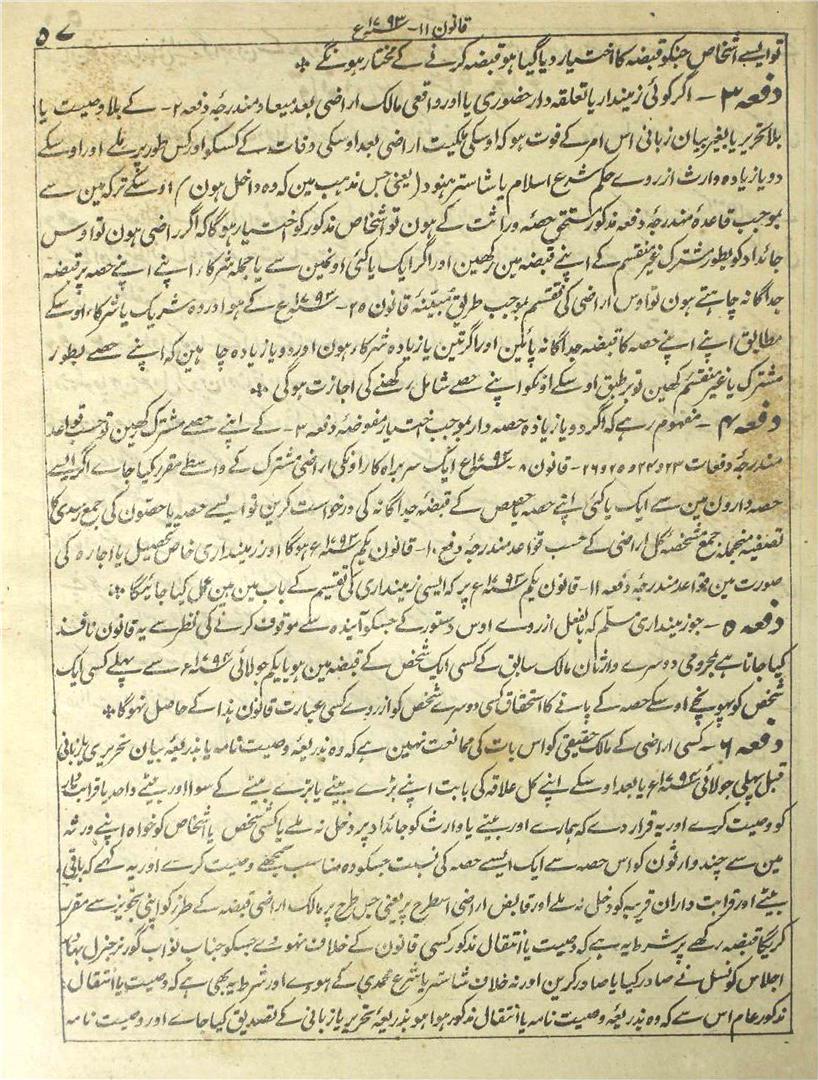 ۵۷
قانون ۱۱- ۱۷۹۳ع
تو ایسے اشخاص جنکو قبضہ کا اختیار دیا گیا ہو قبضہ کرنے کے مختار ہونگے *
دفعہ ۳- اگر کوئی زمیندار یا تعلقہ دار حضوری یا اور واقعی مالک اراضی بعد میعاد مندرجہ دفعہ ۲- کے بلا وصیت یا
بلا تحریر یا بغیر بیان زبانی اس امر کے فوت ہو کہ اوسکی ملکیت اراضی بعد اوسکی وفات کے کسکو اور کس طور پر ملے اور اوسکے
دو یا زیادہ وارث ازروے حکم شرع اسلام یا شاستر ہنود (یعنی جس مذہب مین کہ وہ داخل ہون) اوسکے ترکہ مین سے
بموجب قاعدہ مندرجہ دفعہ مذکور مستحق حصہ وراثت کے ہون تو اشخاص مذکور کو اختیار ہوگا کہ اگر راضی ہون تو اوس
جائداد کو بطور مشترک غیر منقسم کے اپنے قبضہ مین رکھین اور اگر ایک یا کئی اونمین سے یا جملہ شرکاء اپنے اپنے حصہ پر قبضہ
جداگانہ چاہتے ہون تو اوس اراضی کی تقسیم بموجب طریق مبینہ قانون ۲۵- ۱۷۹۳ع کے ہو اور وہ شریک یا شرکاء اوسکے
مطابق اپنے اپنے حصہ کا قبضہ جداگانہ پائین اور اگر تین یا زیادہ شرکاء ہون اور دو یا زیادہ چاہین کہ اپنے حصے بطور
مشترک یا غیر منقسم رکھین تو برطبق اوسکے اونکو اپنے حصے شامل رکھنے کی اجازت ہوگی *
دفعہ ۴- مفہوم رہے کہ اگر دو یا زیادہ حصہ دار بموجب اختیار مفوضہ دفعہ ۳- کے اپنے حصے مشترک رکھین تو حسب قواعد
مندرجہ دفعات ۲۳ و ۲۴ و ۲۵ و ۲۶- قانون ۸- ۱۷۹۳ع ایک سربراہ کار اونکی اراضی مشترک کے واسطے مقرر کیا جاے اگر ایسے
حصہ دارون مین سے ایک یا کئی اپنے حصہ حصص کے قبضہ جداگانہ کی درخواست کرین تو ایسے حصہ یا حصون کی جمع سرکاری کا
تصفیہ منجملہ جمع مشخصہ کل اراضی کے حسب قواعد مندرجہ دفعہ ۱۰- قانون یکم ۱۷۹۳ع ہوگا اور زمینداری خاص تحصیل یا اجارہ کی
صورت مین قواعد مندرجہ دفعہ ۱۱- قانون یکم ۱۷۹۳ع پر کہ ایسی زمینداری کی تقسیم کے باب مین ہین عمل کیا جائیگا *
دفعہ ۵- جو زمینداری مسلم کہ بالفعل ازروے اوس دستور کے جسکو آیندہ سے موقوف کرنے کی نظر سے یہ قانون نافذ
کیا جاتا ہے بمحرومی دوسرے وارثان مالک سابق کے کسی ایک شخص کے قبضہ مین ہو یا یکم جولائی ۱۷۹۴ع سے پہلے کسی ایک
شخص کو پہونچے اوسکے حصہ کے پانے کا استحقاق کسی دوسرے شخص کو ازروے کسی عبارت قانون ہذا کے حاصل نہوگا *
دفعہ ۶- کسی اراضی کے مالک حقیقی کو اس بات کی ممانعت نہین ہے کہ وہ بذریعہ وصیت نامہ یا بذریعہ بیان تحریری یا زبانی
قبل پہلی جولائی ۱۷۹۴ع یا بعد اوسکے اپنے کل علاقہ کی بابت اپنے بڑے بیٹے یا بڑے بیٹے کے سوا اور بیٹے واحد یا قرابت دار
کو وصیت کرے اور یہ قرار دے کہ ہمارے اور بیٹے یا وارث کو جائداد پر دخل نہ ملے یا کسی شخص یا اشخاص کو خواہ اپنے ورثہ
مین سے چند وارثون کو اس حصہ سے ایک ایسے حصہ کی نسبت جسکو وہ مناسب سمجھے وصیت کرے اور یہ کہے کہ باقی
بیٹے اور قرابت داران قریب کو دخل نہ ملے اور قابض اراضی اسطرح پر یعنی جس طرح پر مالک اراضی قبضہ کے طرز کو اپنی تجویز سے مقرر
کریگا قبضہ رکھے پر شرط یہ ہے کہ وصیت یا انتقال مذکور کسی قانون کے خلاف نہووے جسکو جناب نواب گورنر جنرل بہادر
اجلاس کونسل نے صادر کیا یا صادر کرین اور نہ خلاف شاستر یا شرع محمدی کے ہووے اور شرط یہ بھی ہے کہ وصیت یا انتقال
مذکور عام اس سے کہ وہ بذریعہ وصیت نامہ یا انتقال مذکور ہوا ہو بذریعہ تحریر یا زبانی کے تصدیق کیا جاے اور وصیت نامہ